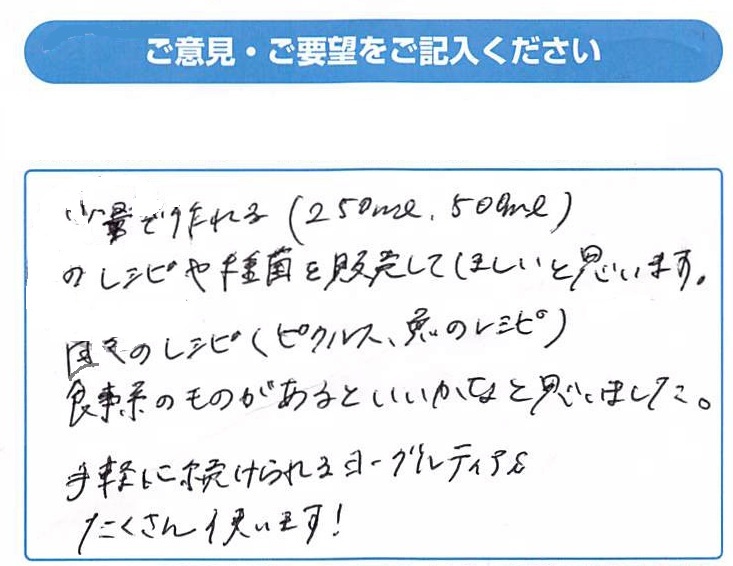 ご意見・ご要望をご記入ください
少量で作れる(250ml、500ml)
のレシピや種菌を販売してほしいと思います。
のレシピ(ピクルス、魚のレシピ)
食事系のものがあるといいかなと思いました。
手軽に続けられるヨーグルティアを
たくさん使います!